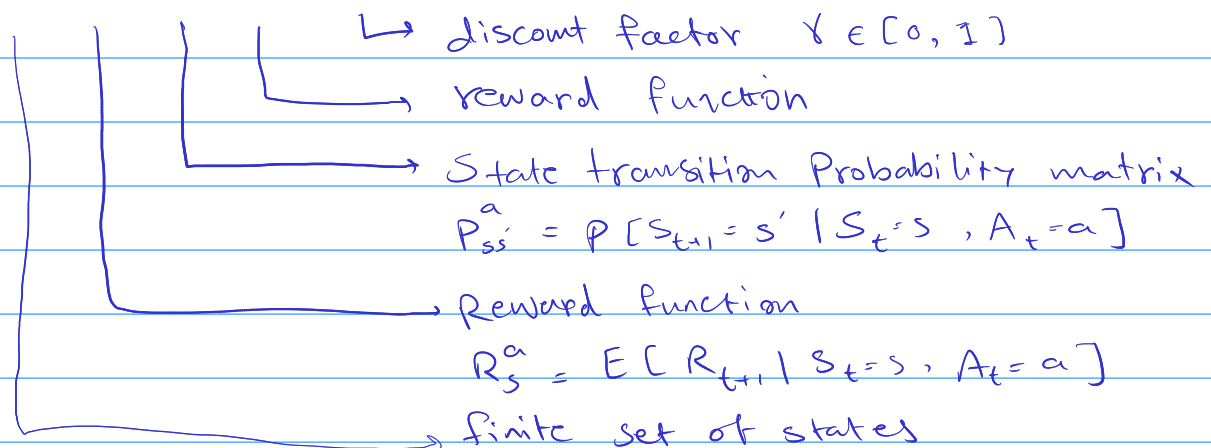 discount factor γ ∈ [0, 1]
reward function
State transition Probability matrix
P^a_ss' = P [S_t+1 = s' | S_t = s , A_t = a]
Reward function
R^a_s = E [ R_t+1 | S_t = s, A_t = a ]
finite set of states